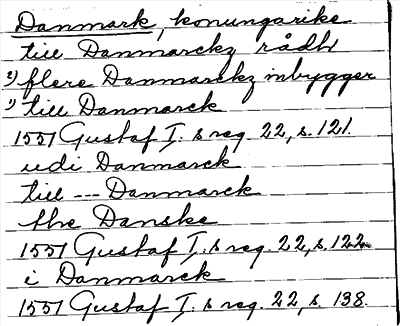 Danmark, konungarike
till Danmarckz rådh
2) flere Danmarckz inbygger
1) till Danmarck
1551 Gustaf I. s reg. 22, s. 121.
udi Danmarck
till --- Danmarck
the Danske
1551 Gustaf I. s reg. 22, s. 122
i Danmarck
1551 Gustaf I. s reg. 22, s. 138.